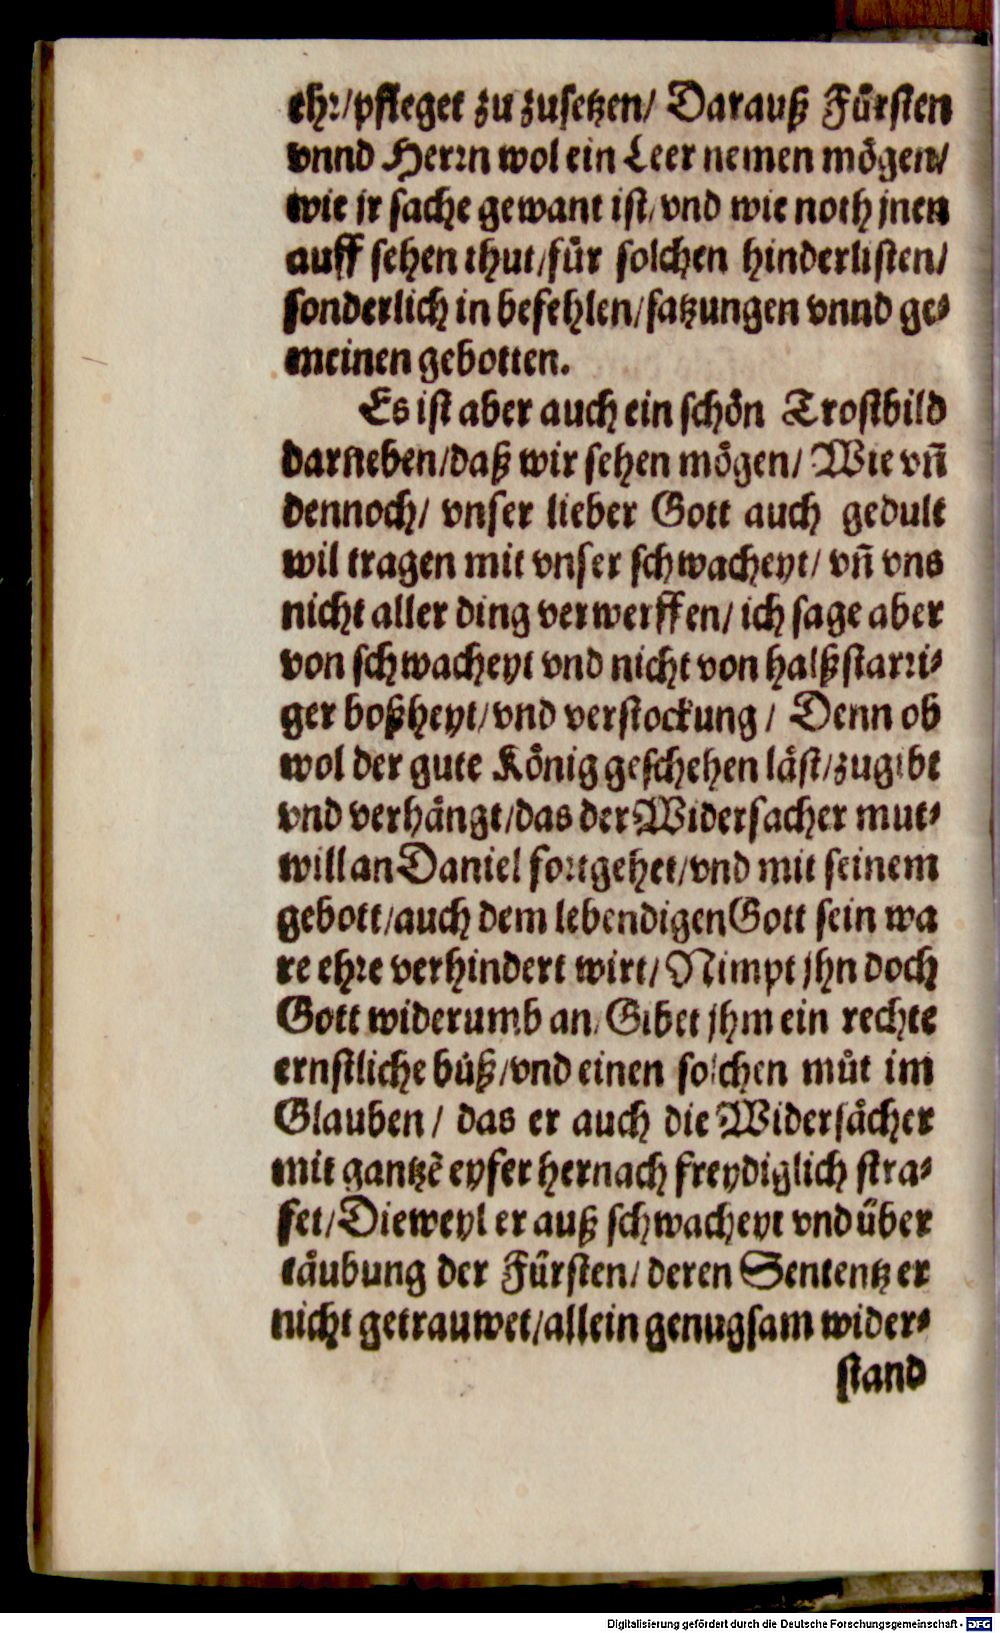 ehr/pfleget zu zusetzen/ Darauß Fürsten
vnnd Herrn wol ein Leer nemen mögen/
wie jr sache gewant ist/vnd wie noth jnen
auff sehen thut/für solchen hinderlisten/
sonderlich in befehlen/satzungen vnnd ge-
meinen gebotten.
Es ist aber auch ein schön Trostbild
darneben/daß wir sehen mögen/ Wie vñ
dennoch/ vnser lieber Gott auch gedult
wil tragen mit vnser schwacheyt/ vñ vns
nicht aller ding verwerffen/ ich sage aber
von schwacheyt vnd nicht von halßstarri-
ger boßheyt/vnd verstockung/ Denn ob
wol der gute König geschehen läst/zugibt
vnd verhängt/das der Widersacher mut-
will an Daniel fortgehet/vnd mit seinem
gebott/auch dem lebendigen Gott sein wa
re ehre verhindert wirt/ Nimpt jhn doch
Gott widerumb an/ Gibet jhm ein rechte
ernstliche bůß/vnd einen solchen můt im
Glauben/ das er auch die Widersächer
mit gantzē eyfer hernach freydiglich stra-
fet/Dieweyl er auß schwacheyt vnd über
täubung der Fürsten/deren Sententz er
nicht getrauwet/allein genugsam wider-
stand
Digitalisierung gefördert durch die Deutsche Forschungsgemeinschaft - DFG